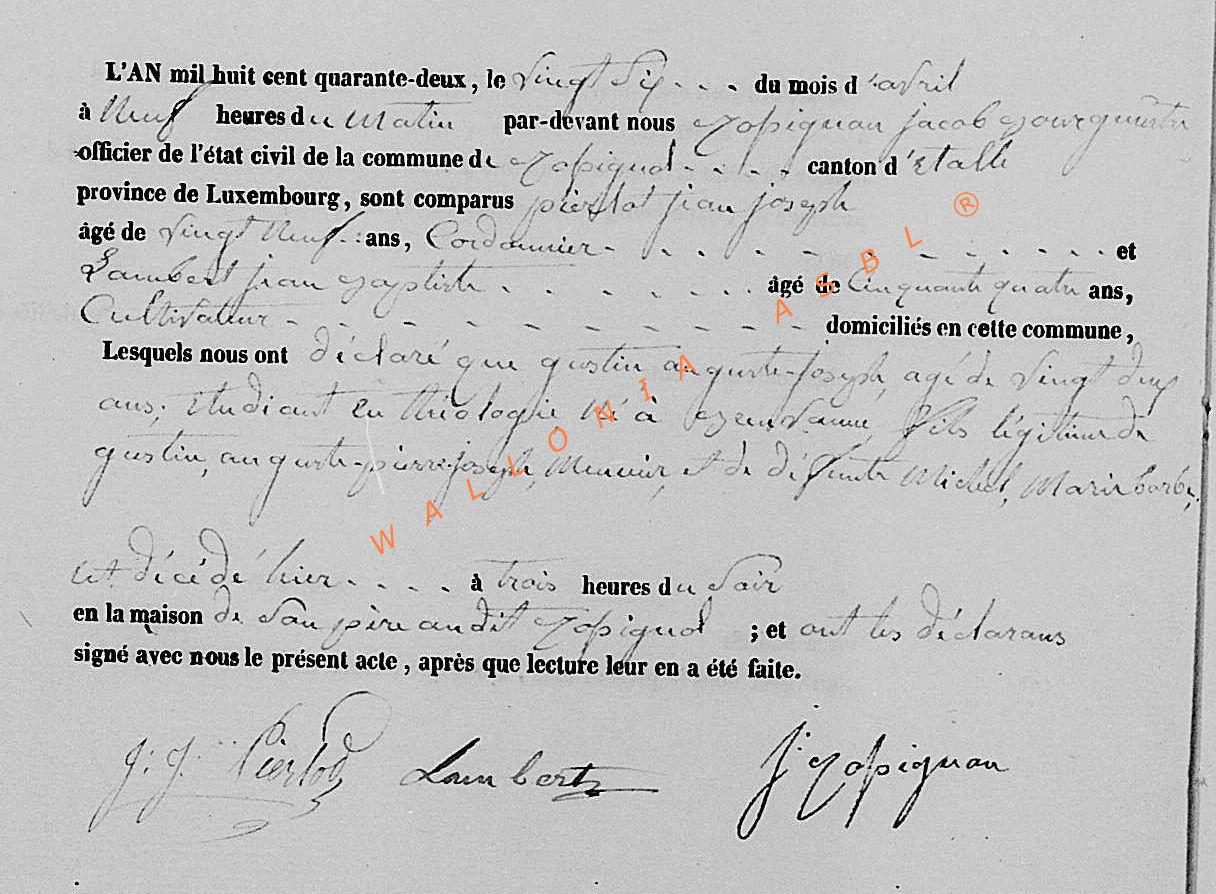 L'AN mil huit cent quarante-deux, le vingt six . . . du mois d'avril
à neuf heures du matin par-devant nous jacob
officier de l'état civil de la commune de . . . . canton d'Etalle
province de Luxembourg, sont comparus pierlot jean joseph
âgé de vingt neuf ans, Cordonnier - . . . . . . . . . . . . et
Lambert jean baptiste . . . . . . . âgé de Cinquante quatre ans,
Cultivateur - - - - - - - - - - domiciliés en cette commune,
Lesquels nous ont déclaré que gustin auguste-joseph, agé de vingt deux
ans, Etudiant en théologie, né à fils légitime de
gustin, auguste-pierre-joseph, Meunier, et de défunte Michel, Marie barbe,
est décédé hier . . . . à trois heures du soir
en la maison de son père audit ; et ont les déclarans
signé avec nous le présent acte, après que lecture leur en a été faite.
J. J. Pierlot Lambert
WALLONIA ASBL ®